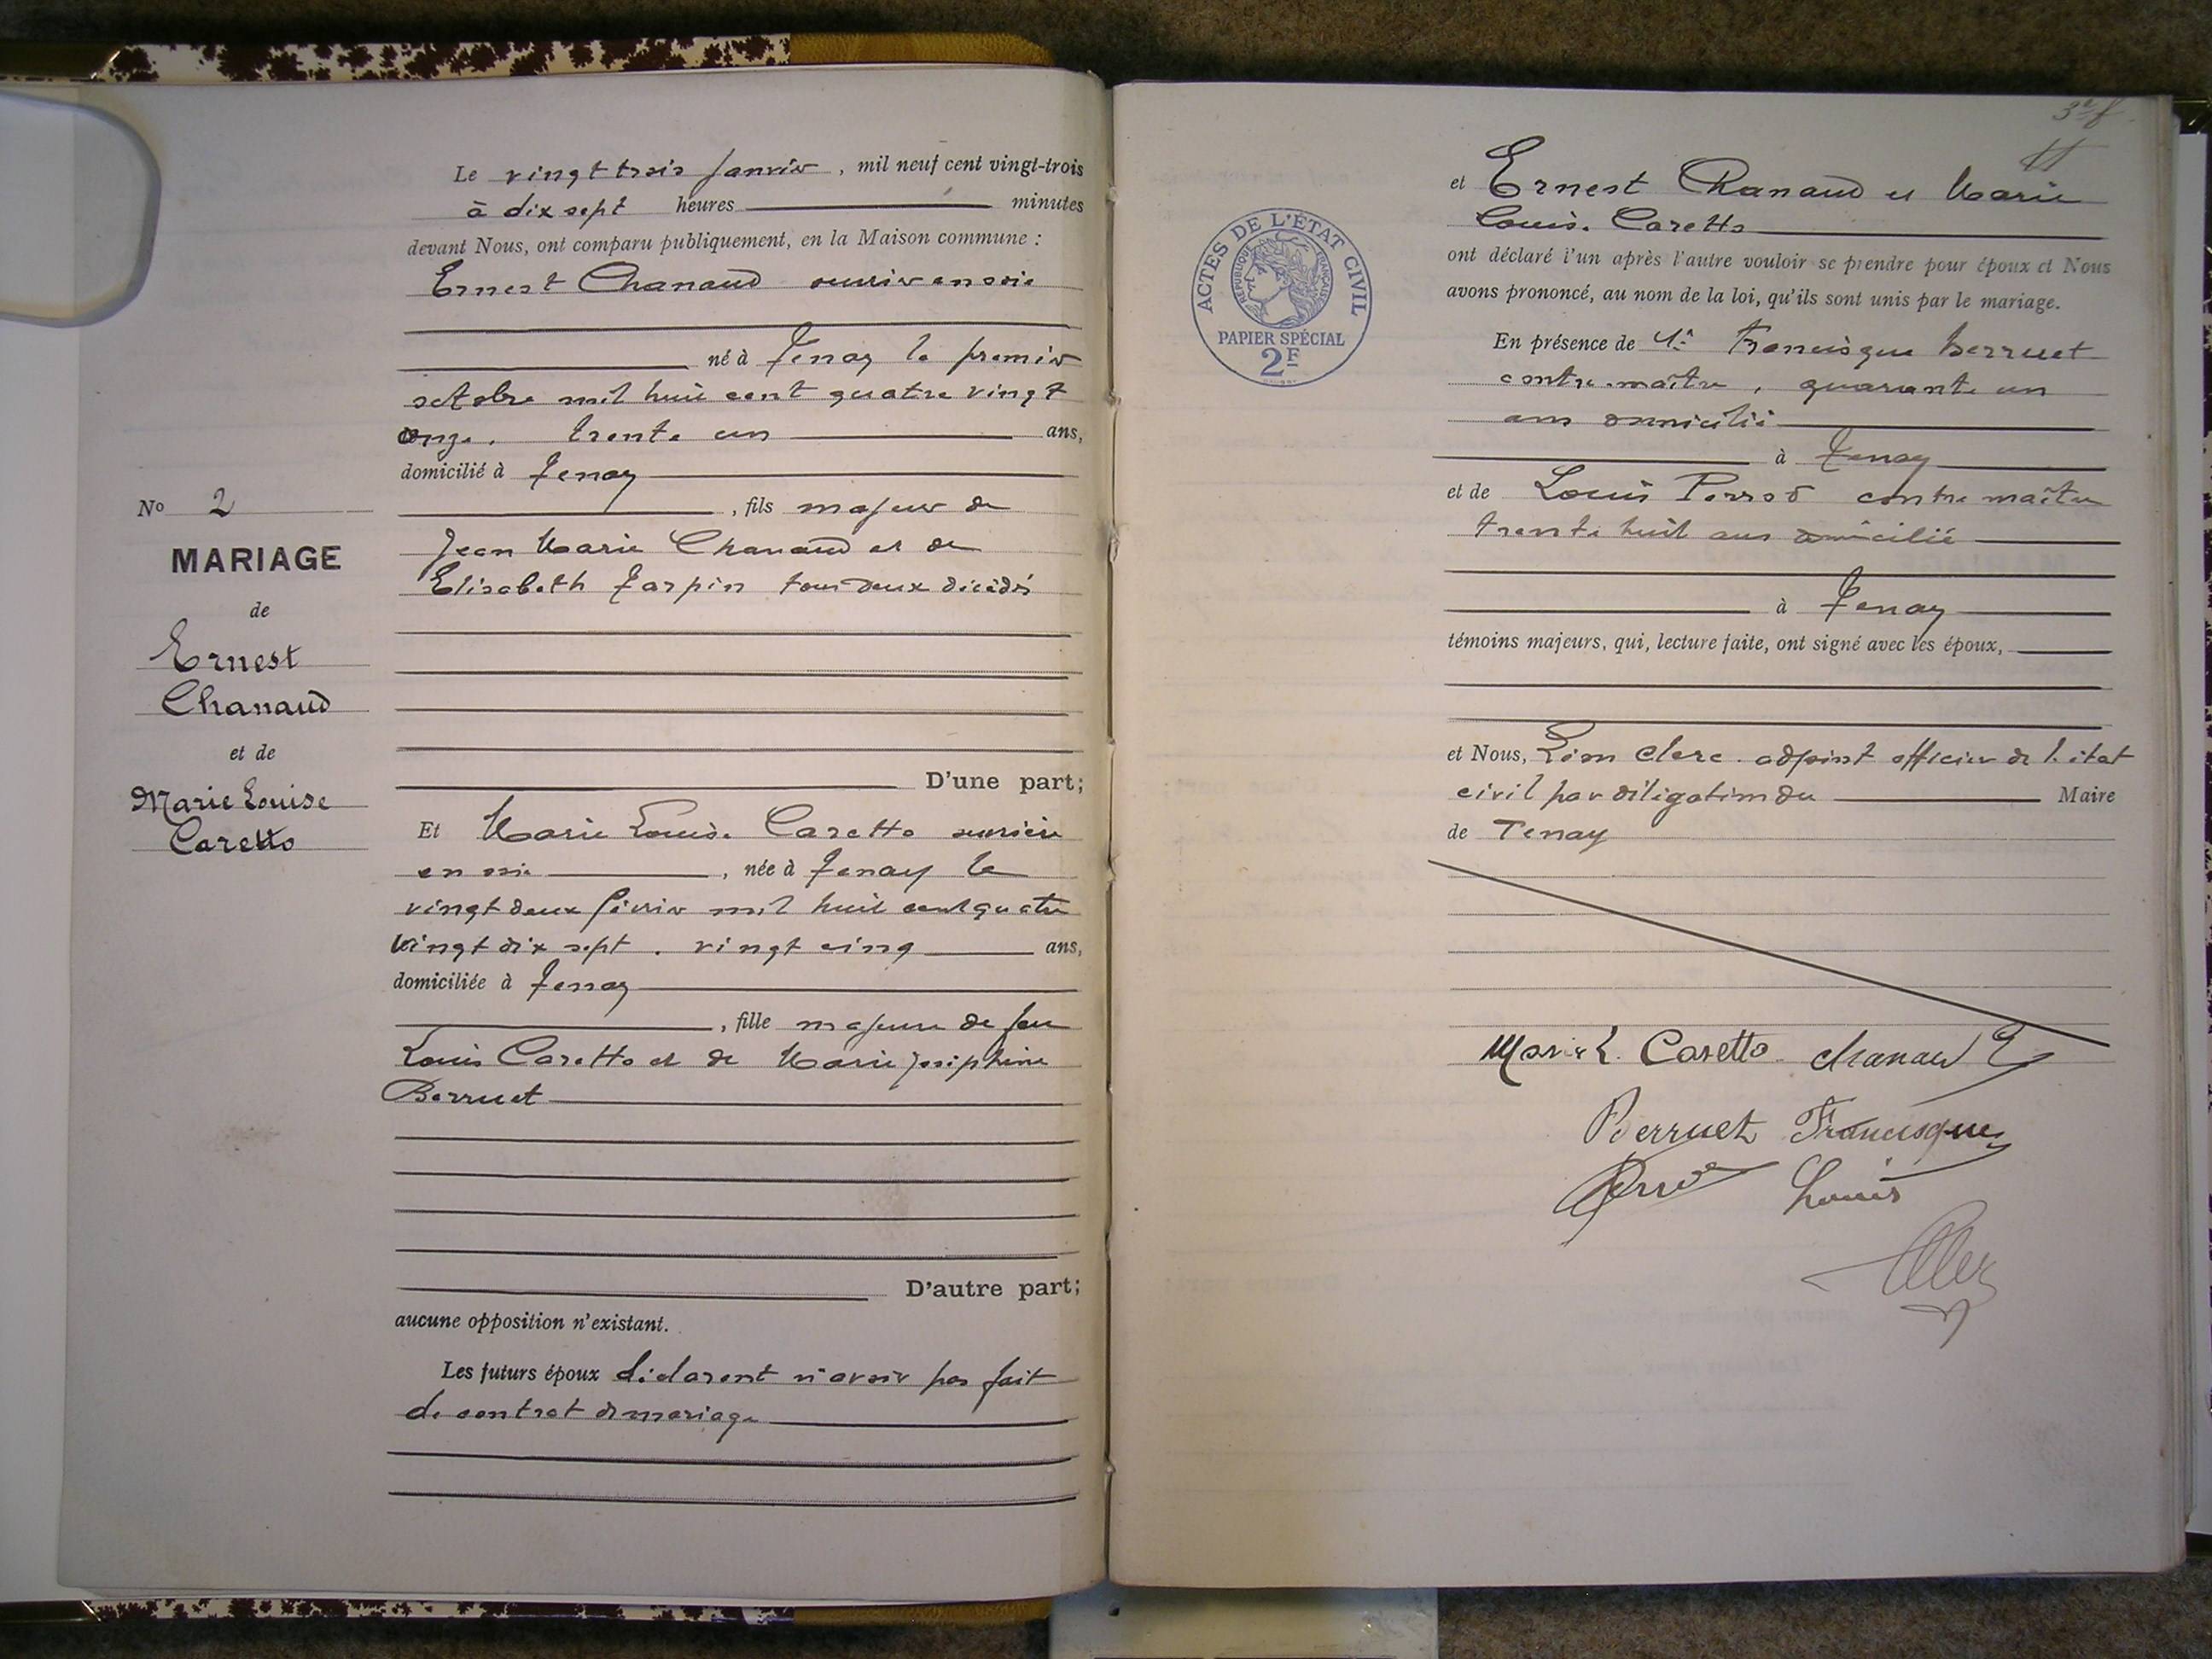 Le vingt trois Janvier, mil neuf cent vingt-trois
à dix sept heures minutes
devant Nous, ont comparu publiquement, en la Maison commune :
Ernest Chanaud ouvrier en soie
né à Tenay le premier
octobre mil huit cent quatre vingt
onze. trente un ans,
domicilié à Tenay
, fils majeur de
Jean Marie Chanaud et de
Elisabeth Tarpin tous deux décédés
No 2
MARIAGE
de
Ernest
Chanaud
et de
Marie Louise
Caretto
D'une part;
Et Marie Louise Caretto ouvrière
en soie, née à Tenay le
vingt deux février mil huit cent quatre
vingt dix sept. vingt cinq ans,
domiciliée à Tenay
, fille majeure de feu
Louis Caretto et de Marie Joséphine
Berruet
D'autre part;
aucune opposition n'existant.
Les futurs époux déclarent n'avoir pas fait
de contrat de mariage
3e f
ACTES DE L'ÉTAT CIVIL
RÉPUBLIQUE FRANÇAISE
PAPIER SPÉCIAL
2F
et Ernest Chanaud et Marie
Louise Caretto
ont déclaré l'un après l'autre vouloir se prendre pour époux et Nous
avons prononcé, au nom de la loi, qu'ils sont unis par le mariage.
En présence de Francisque Berruet
contre-maître, quarante un
ans domicilié
à Tenay
et de Louis Perrod contre maître
trente huit ans domicilié
à Tenay
témoins majeurs, qui, lecture faite, ont signé avec les époux,
et Nous, Léon Clerc adjoint officier de l'état
civil par délégation du Maire
de Tenay
Marie L. Caretto Chanaud E
Berruet Francisque
Perrod Louis